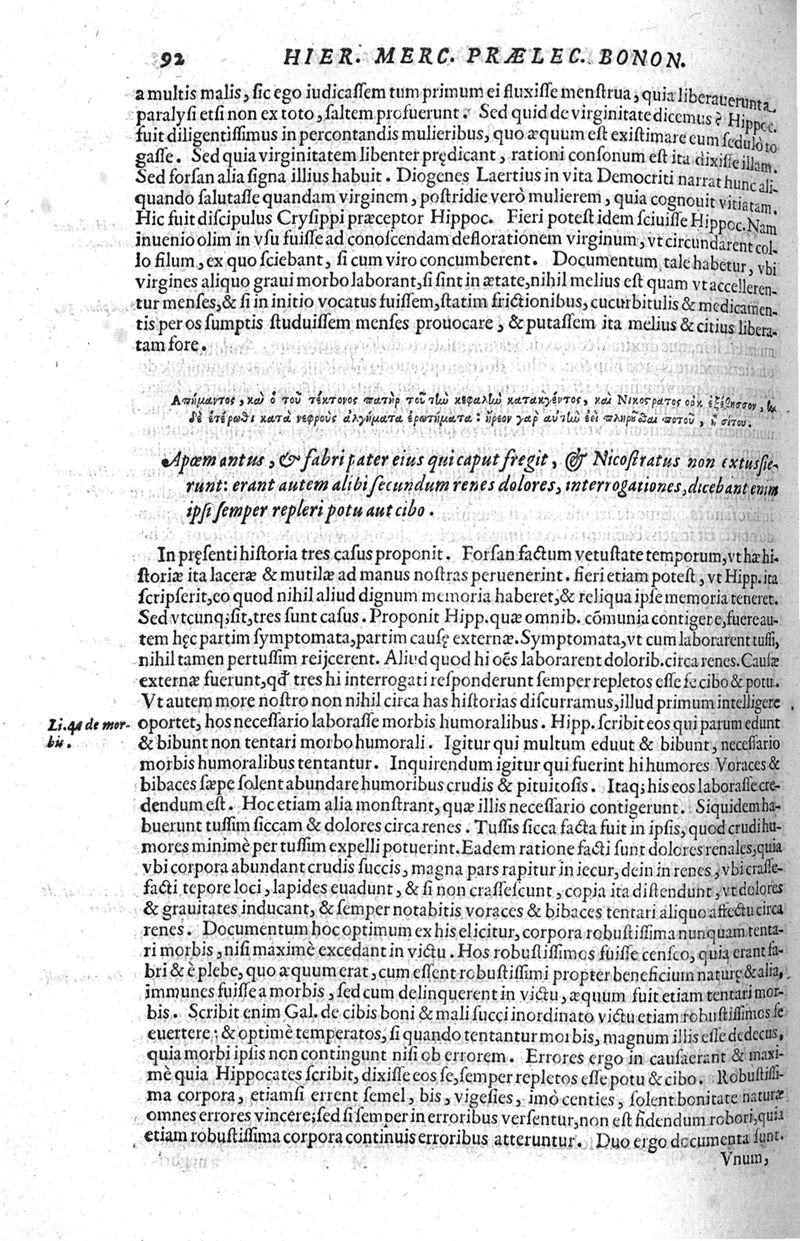 92 HIER. MERC. PRÆLEC. BONON.
a multis malis, ſic ego iudicaſſem tum primum ei fluxiſſe menſtrua, quia liberauerunt a
paralyſi etſi non ex toto, ſaltem profuerunt. Sed quid de virginitate dicemus? Hippoc.
fuit diligentiſſimus in percontandis mulieribus, quo æquum eſt exiſtimare eum ſedulò ro
gaſſe. Sed quia virginitatem libenter prędicant, rationi conſonum eſt ita dixiſſe illam.
Sed forſan alia ſigna illius habuit. Diogenes Laertius in vita Democriti narrat hunc ali-
quando ſalutaſſe quandam virginem, poſtridie verò mulierem, quia cognouit vitiatam.
Hic fuit diſcipulus Cryſippi præceptor Hippoc. Fieri poteſt idem ſciuiſſe Hippoc. Nam
inuenio olim in vſu fuiſſe ad conoſcendam deflorationem virginum, vt circundarent col-
lo filum, ex quo ſciebant, ſi cum viro concumberent. Documentum tale habetur, vbi
virgines aliquo graui morbo laborant, ſi ſint in ætate, nihil melius eſt quam vt accelleren-
tur menſes, & ſi in initio vocatus fuiſſem, ſtatim frictionibus, cucurbitulis & medicamen-
tis per os ſumptis ſtuduiſſem menſes prouocare, & putaſſem ita melius & citius libera-
tam fore.
Απήμαντος, καὶ ὁ τοῦ τέκτονος πατὴρ τοῦ τὼ κεφαλὼ κατακλέντος, καὶ Νικόστρατος οὐκ ἐξέβησσον,
δὲ ἑτέρωθι κατὰ νεφροὺς ἀλγήματα ἐρωτήματα: ἤρεον γὰρ αὐτὼ ἀεὶ πληροῦσθαι ποτοῦ, ἢ σίτου.
Apœmantus, & fabri pater eius qui caput fregit, & Nicoſtratus non extusſie-
runt: erant autem alibi ſecundum renes dolores, interrogationes, dicebant enim
ipſi ſemper repleri potu aut cibo.
In pręſenti hiſtoria tres caſus proponit. Forſan factum vetuſtate temporum, vt hæ hi-
ſtoriæ ita laceræ & mutilæ ad manus noſtras peruenerint. fieri etiam poteſt, vt Hipp. ita
ſcripſerit, eo quod nihil aliud dignum memoria haberet, & reliqua ipſe memoria teneret.
Sed vtcunq; ſit, tres ſunt caſus. Proponit Hipp. quæ omnib. cōmunia contigere, fuere au-
tem hęc partim ſymptomata, partim cauſę externæ. Symptomata, vt cum laborarent tuſſi,
nihil tamen per tuſſim reijcerent. Aliud quod hi oēs laborarent dolorib. circa renes. Cauſæ
externæ fuerunt, qđ tres hi interrogati reſponderunt ſemper repletos eſſe ſe cibo & potu.
Vt autem more noſtro non nihil circa has hiſtorias diſcurramus, illud primum intelligere
oportet, hos neceſſario laboraſſe morbis humoralibus. Hipp. ſcribit eos qui parum edunt
Li. 4 de mor-
bis.
& bibunt non tentari morbo humorali. Igitur qui multum eduut & bibunt, neceſſario
morbis humoralibus tentantur. Inquirendum igitur qui fuerint hi humores Voraces &
bibaces ſæpe ſolent abundare humoribus crudis & pituitoſis. Itaq; his eos laboraſſe cre-
dendum eſt. Hoc etiam alia monſtrant, quæ illis neceſſario contigerunt. Siquidem ha-
buerunt tuſſim ſiccam & dolores circa renes. Tuſſis ſicca facta fuit in ipſis, quod crudi hu-
mores minimè per tuſſim expelli potuerint. Eadem ratione facti ſunt dolores renales, quia
vbi corpora abundant crudis ſuccis, magna pars rapitur in iecur, dein in renes, vbi craſſe-
facti tepore loci, lapides euadunt, & ſi non craſſeſcunt, copia ita diſtendunt, vt dolores
& grauitates inducant, & ſemper notabitis voraces & bibaces tentari aliquo affectu circa
renes. Documentum hoc optimum ex his elicitur, corpora robuſtiſſima nunquam tenta-
ri morbis, niſi maximè excedant in victu. Hos robuſtiſſimos fuiſſe cenſeo, quia erant fa-
bri & è plebe, quo æquum erat, cum eſſent robuſtiſſimi propter beneficium naturę & alia,
immunes fuiſſe a morbis, ſed cum delinquerent in victu, æquum fuit etiam tentari mor-
bis. Scribit enim Gal. de cibis boni & mali ſucci inordinato victu etiam robuſtiſſimos ſe
euertere: & optimè temperatos, ſi quando tentantur morbis, magnum illis eſſe dedecus,
quia morbi ipſis non contingunt niſi ob errorem. Errores ergo in cauſa erant & maxi-
mè quia Hippocates ſcribit, dixiſſe eos ſe, ſemper repletos eſſe potu & cibo. Robuſtiſſi-
ma corpora, etiamſi errent ſemel, bis, vigeſies, imò centies, ſolent bonitate naturæ
omnes errores vincere; ſed ſi ſemper in erroribus verſentur, non eſt fidendum robori, quia
etiam robuſtiſſima corpora continuis erroribus atteruntur. Duo ergo documenta ſunt.
Vnum,